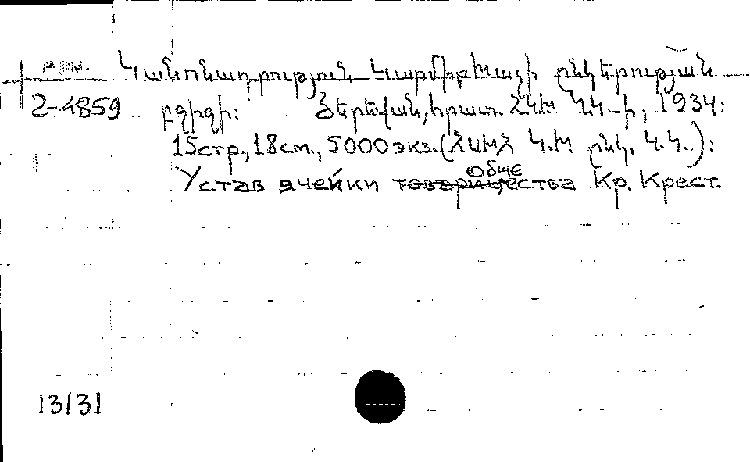 Կանոնադրություն Կարմիր Խաչի ընկերության
2-4859 բջիջի: Յերեվան, հրատ. ՀԿԽ ԿԿ-ի, 1934:
15стр., 18см., 5000 экз. (ՀԱՄՀ Կ.Խ. ընկ. Կ.Կ.):
Устав ячейки Общества Кр. Крест.
13131